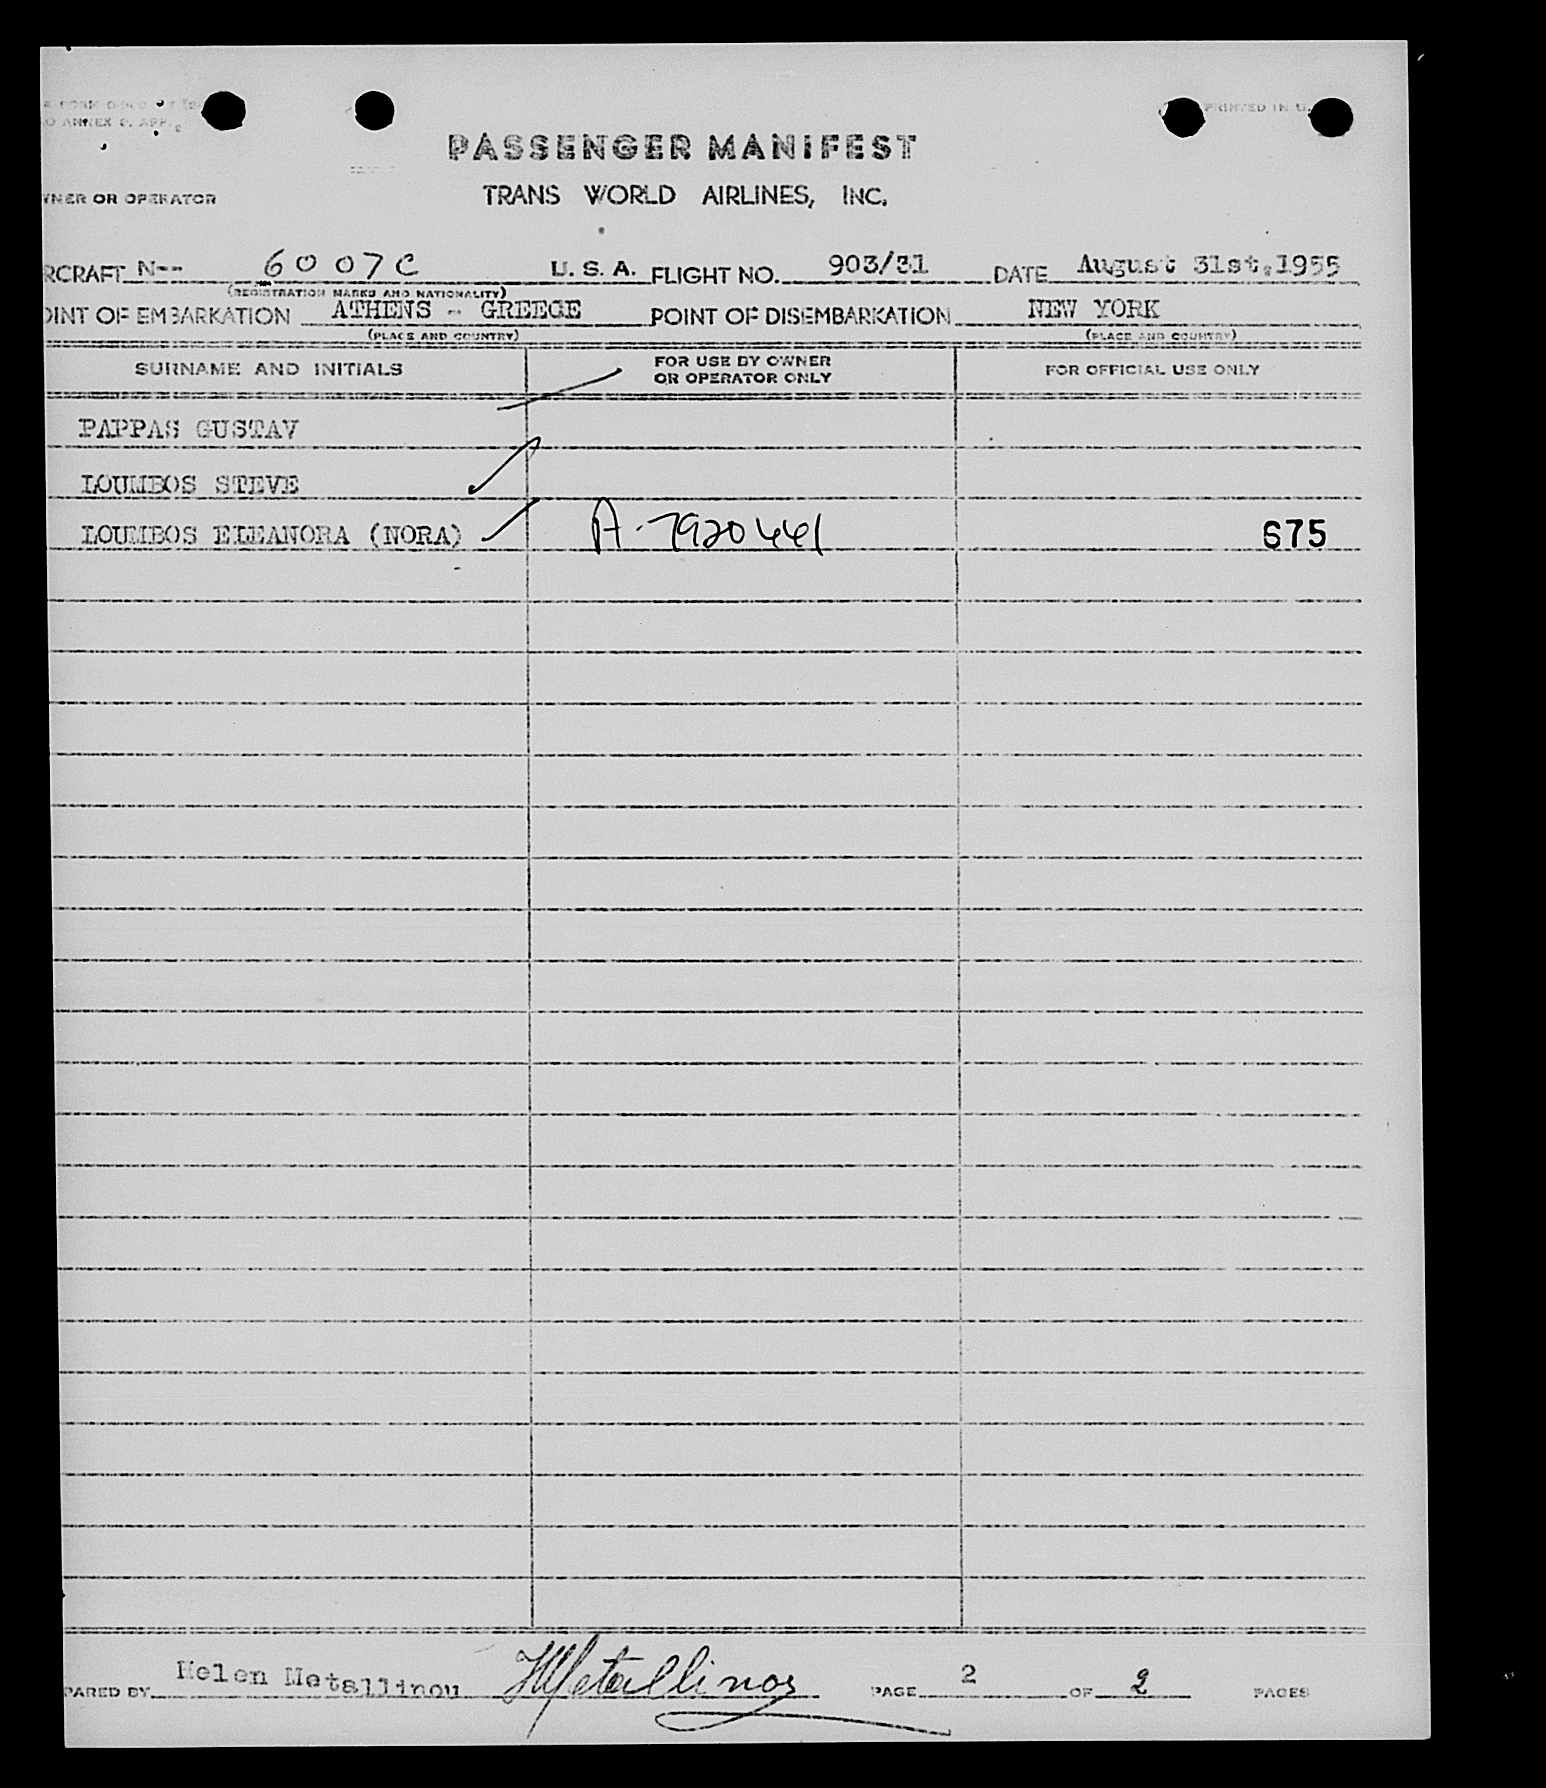 O ANNEX 9, APP.
PRINTED IN U.
PASSENGER MANIFEST
TRANS WORLD AIRLINES, INC.
WNER OR OPERATOR
RCRAFT N-- 6007C U. S. A. FLIGHT NO. 903/31 DATE August 31st.1955
(REGISTRATION MARKS AND NATIONALITY)
OINT OF EMBARKATION ATHENS - GREECE POINT OF DISEMBARKATION NEW YORK
(PLACE AND COUNTRY) (PLACE AND COUNTRY)
SURNAME AND INITIALS FOR USE BY OWNER OR OPERATOR ONLY FOR OFFICIAL USE ONLY
PAPPAS GUSTAV
LOUMBOS STEVE
LOUMBOS ELEANORA (NORA) A-7920441 675
PARED BY Helen Metallinou HMetallinou PAGE 2 OF 2 PAGES